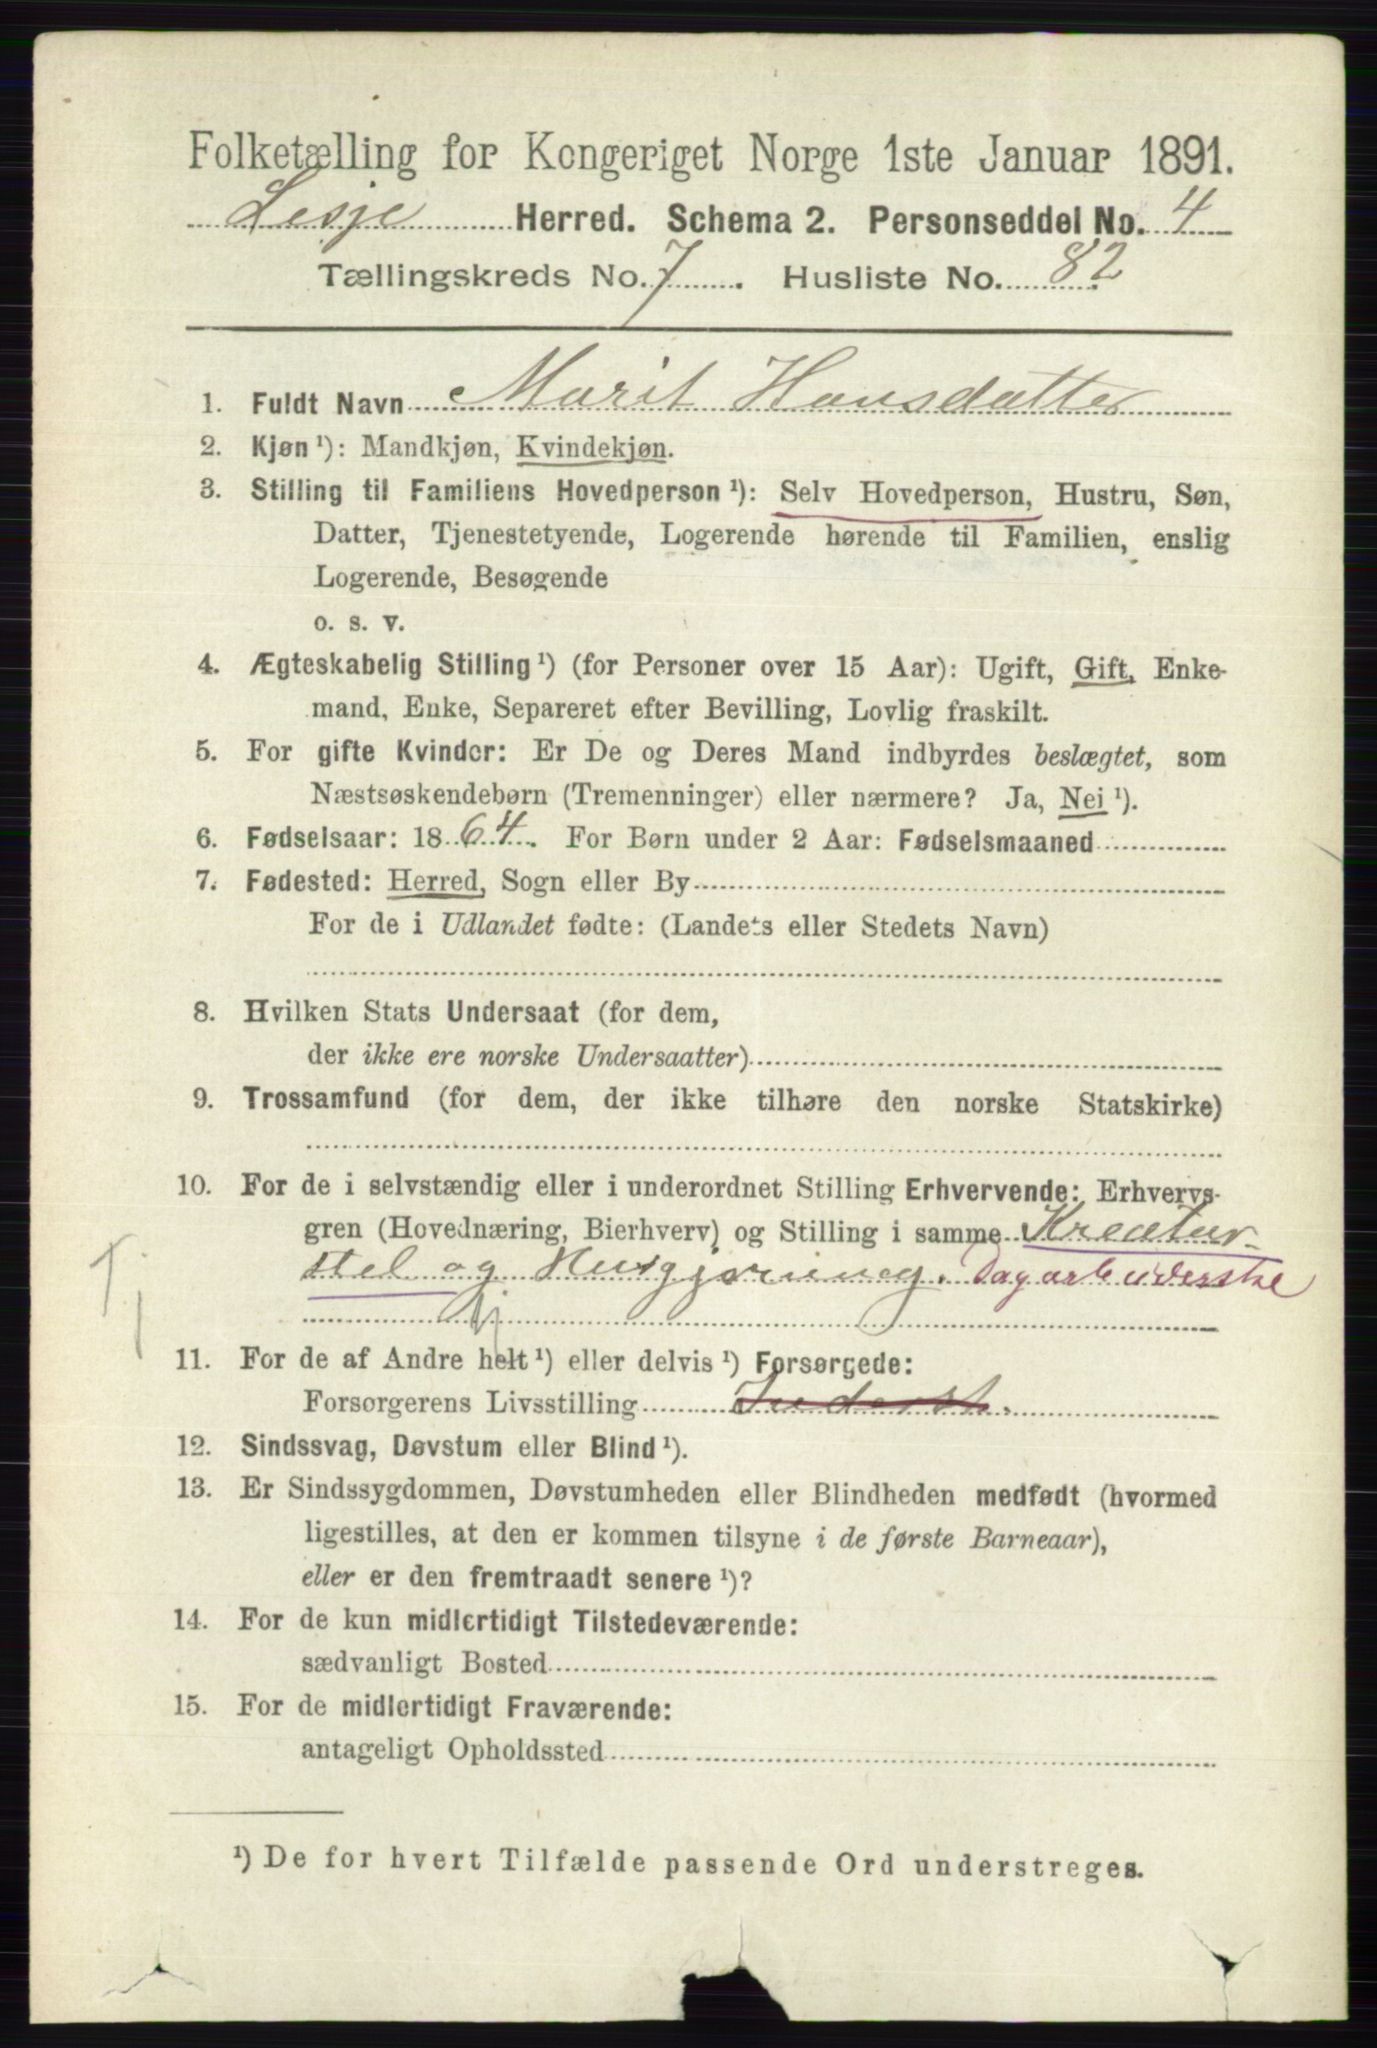 Folketælling for Kongeriget Norge 1ste Januar 1891.
Lesje Herred. Schema 2. Personseddel No. 4
Tællingskreds No. 7. Husliste No. 82
1. Fuldt Navn Marit Hansdatter
2. Kjøn ¹): Mandkjøn, Kvindekjøn.
3. Stilling til Familiens Hovedperson ¹): Selv Hovedperson, Hustru, Søn,
Datter, Tjenestetyende, Logerende hørende til Familien, enslig
Logerende, Besøgende
o. s. v.
4. Ægteskabelig Stilling ¹) (for Personer over 15 Aar): Ugift, Gift, Enke-
mand, Enke, Separeret efter Bevilling, Lovlig fraskilt.
5. For gifte Kvinder: Er De og Deres Mand indbyrdes beslægtet, som
Næstsøskendebørn (Tremenninger) eller nærmere? Ja, Nei ¹).
6. Fødselsaar: 1864. For Børn under 2 Aar: Fødselsmaaned
7. Fødested: Herred, Sogn eller By
For de i Udlandet fødte: (Landets eller Stedets Navn)
8. Hvilken Stats Undersaat (for dem,
der ikke ere norske Undersaatter)
9. Trossamfund (for dem, der ikke tilhøre den norske Statskirke)
10. For de i selvstændig eller i underordnet Stilling Erhvervende: Erhvervs-
gren (Hovednæring, Bierhverv) og Stilling i samme Kreatur-
stel og Husgjerning. Dagarbeiderske
11. For de af Andre helt ¹) eller delvis ¹) Forsørgede:
Forsørgerens Livsstilling Inderst.
12. Sindssvag, Døvstum eller Blind ¹).
13. Er Sindssygdommen, Døvstumheden eller Blindheden medfødt (hvormed
ligestilles, at den er kommen tilsyne i de første Barneaar),
eller er den fremtraadt senere ¹)?
14. For de kun midlertidigt Tilstedeværende:
sædvanligt Bosted
15. For de midlertidigt Fraværende:
antageligt Opholdssted
¹) De for hvert Tilfælde passende Ord understreges.